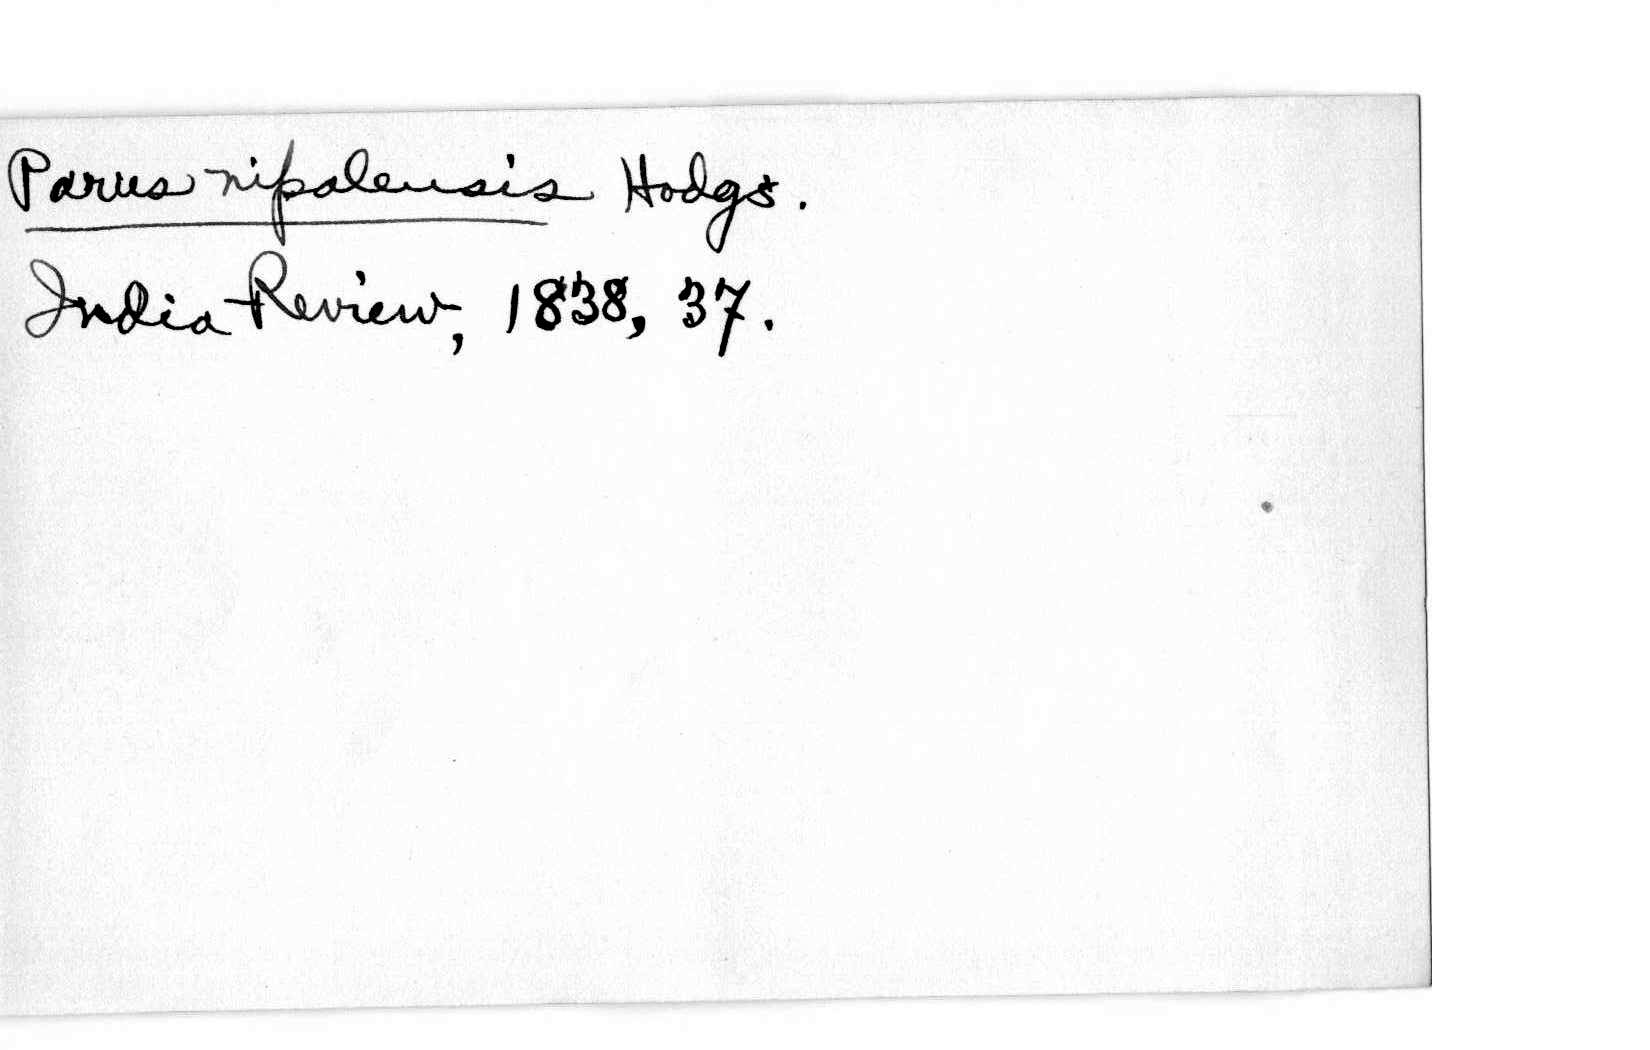 Parus nipalensis Hodgs.
India Review, 1838, 37.